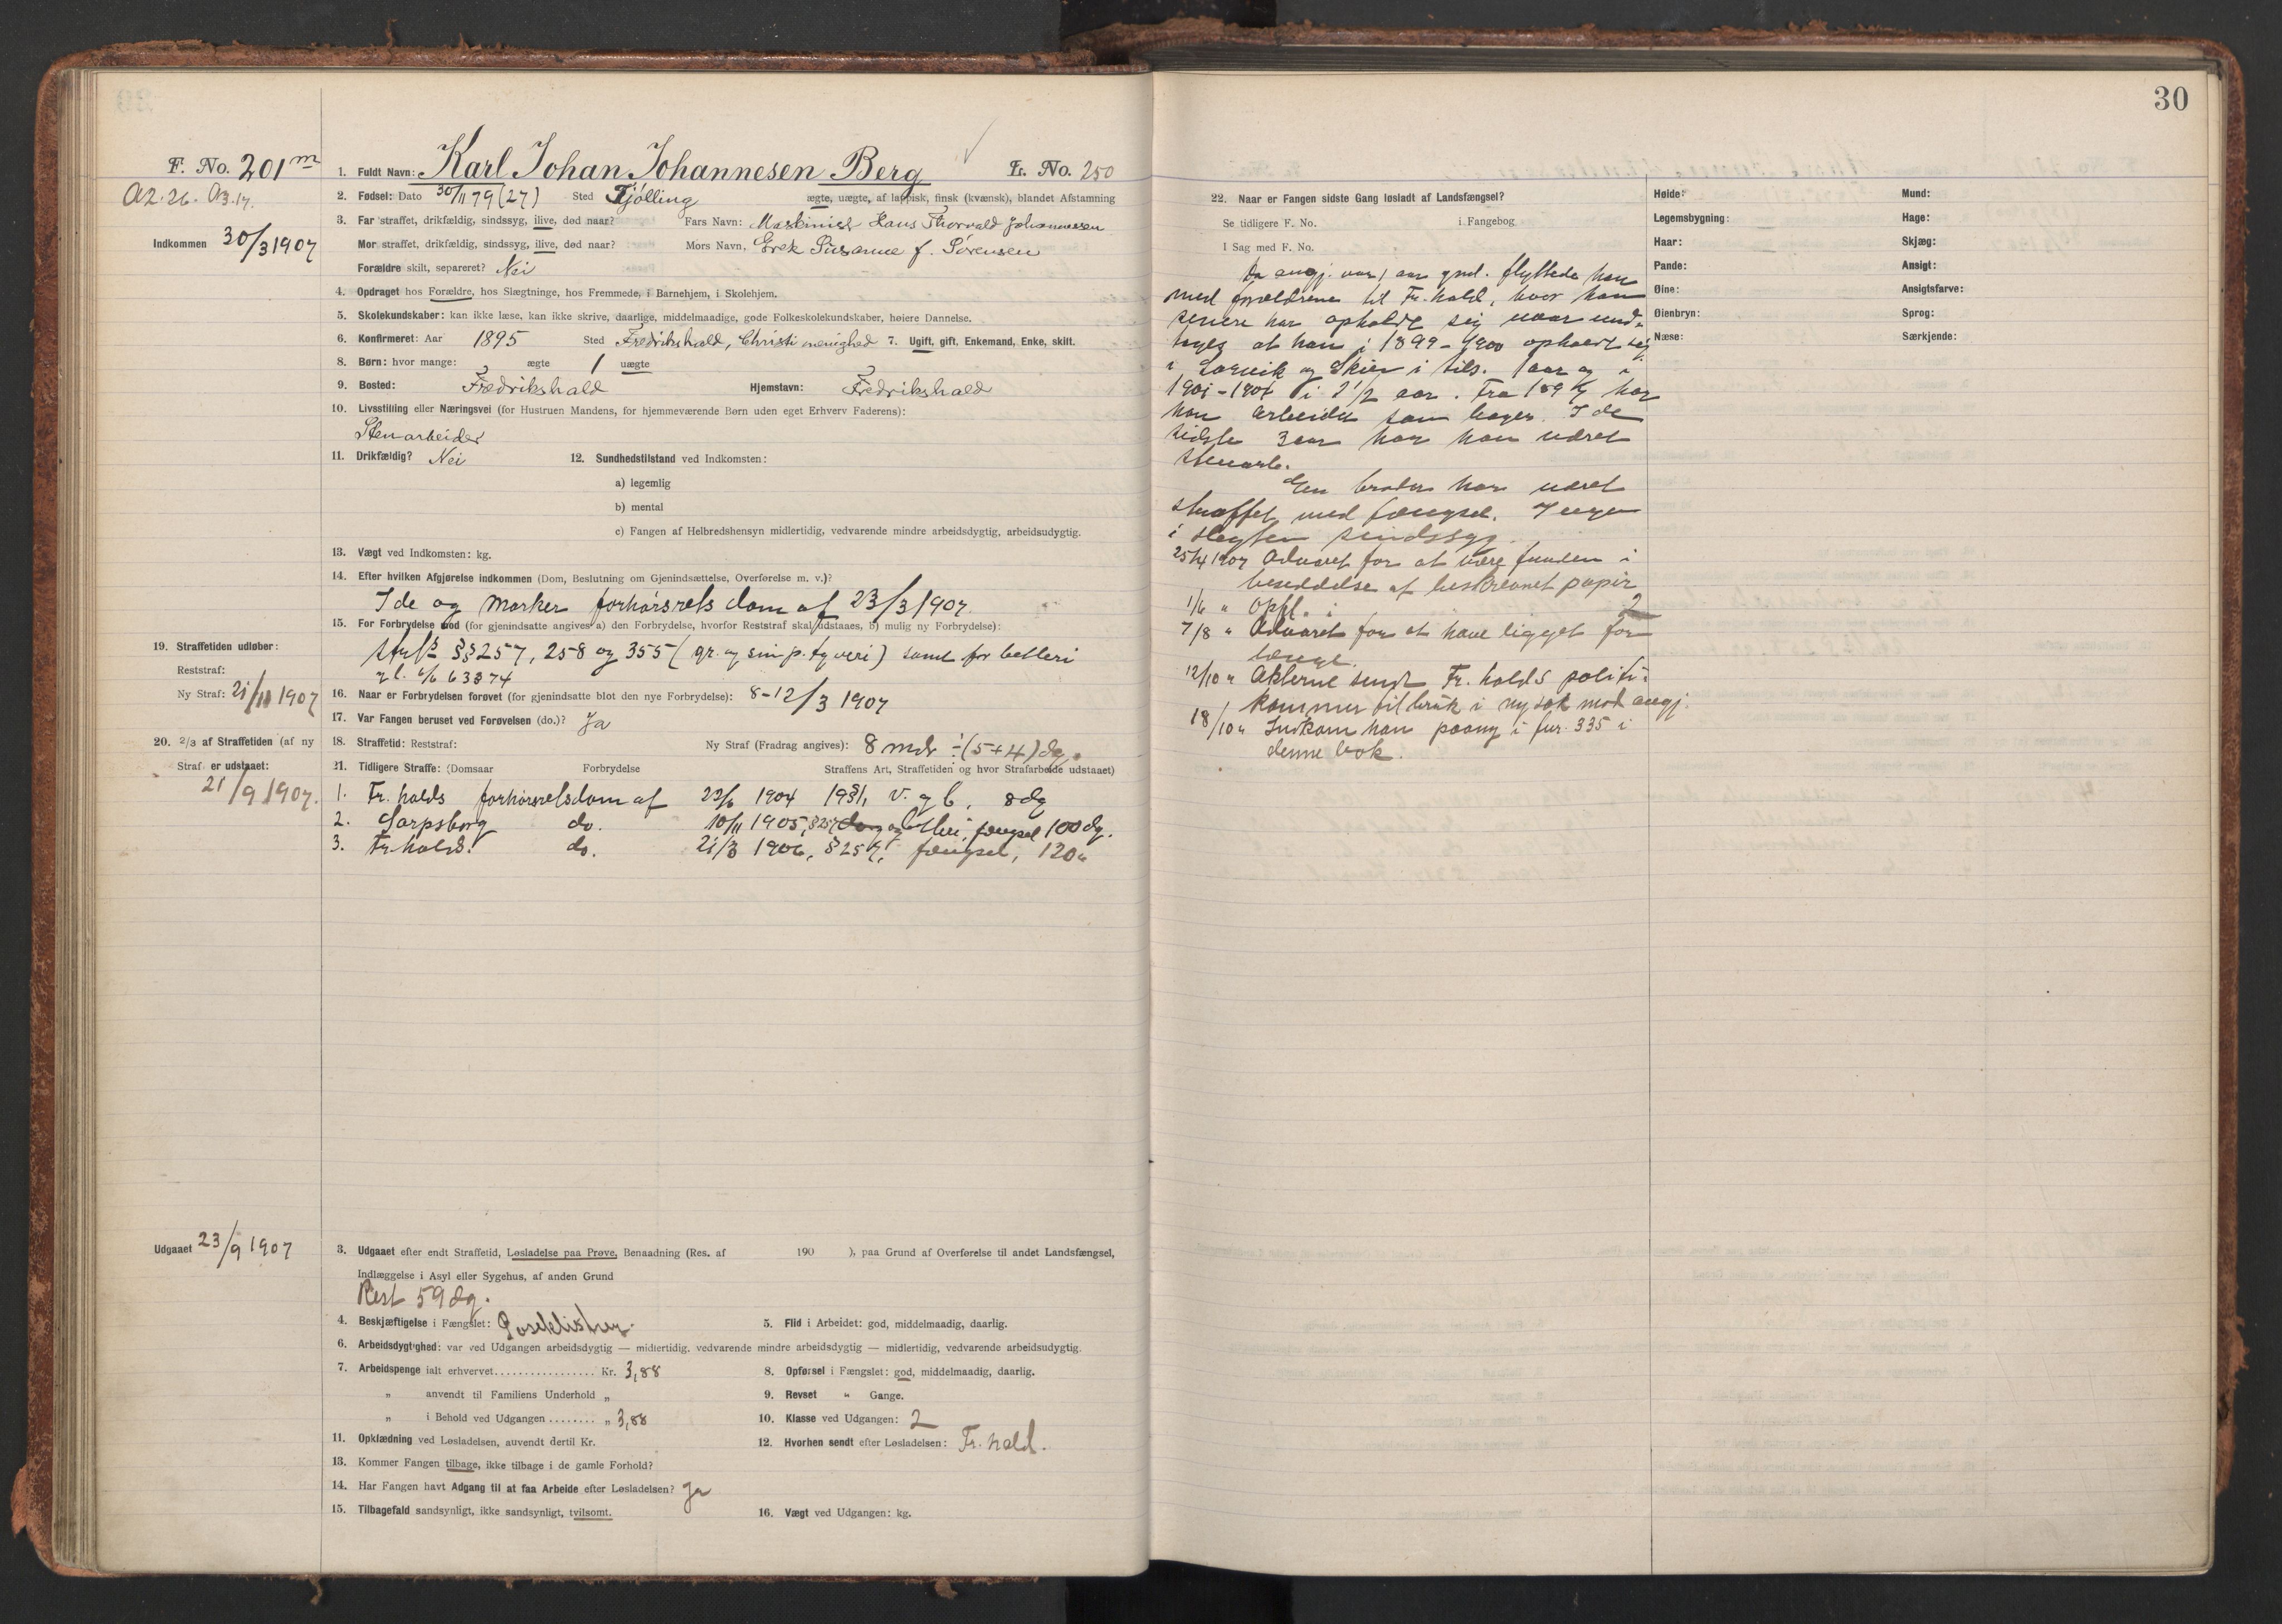 30
F. No. 201 m
A2. 26. A3. 17.
Indkommen 30/3 1907
1. Fuldt Navn: Karl Johan Johannesen Berg L. No. 250
2. Fødsel: Dato 30/11 79 (27) Sted Tjølling ægte, uægte, af lappisk, finsk (kvænsk), blandet Afstamning
3. Far straffet, drikfældig, sindssyg, ilive, død naar? Fars Navn: Maskinist Hans Thorvald Johannessen
Mor straffet, drikfældig, sindssyg, ilive, død naar? Mors Navn, Susanne f. Sørensen
Forældre skilt, separeret? Nei
4. Opdraget hos Forældre, hos Slægtninge, hos Fremmede, i Barnehjem, i Skolehjem.
5. Skolekundskaber: kan ikke læse, kan ikke skrive, daarlige, middelmaadige, gode Folkeskolekundskaber, høiere Dannelse.
6. Konfirmeret: Aar 1895 Sted Fredrikshald, Christi menighed 7. Ugift, gift, Enkemand, Enke, skilt.
8. Børn: hvor mange: ægte 1 uægte
9. Bosted: Fredrikshald Hjemstavn: Fredrikshald
10. Livsstilling eller Næringsvei (for Hustruen Mandens, for hjemmeværende Børn uden eget Erhverv Faderens):
Stenarbeider
11. Drikfældig? Nei 12. Sundhedstilstand ved Indkomsten:
a) legemlig
b) mental
c) Fangen af Helbredshensyn midlertidig, vedvarende mindre arbeidsdygtig, arbeidsudygtig.
13. Vægt ved Indkomsten: kg.
14. Efter hvilken Afgjørelse indkommen (Dom, Beslutning om Gjenindsættelse, Overførelse m. v.)?
Ide og Marker forhørsrets dom af 23/3 1907.
15. For Forbrydelse mod (for gjenindsatte angives a) den Forbrydelse, hvorfor Reststraf skal udstaaes, b) mulig ny Forbrydelse):
§§ 257, 258 og 355 (gr. og simp. tyveri) samt for betleri
63 & 74
16. Naar er Forbrydelsen forøvet (for gjenindsatte blot den nye Forbrydelse): 8-12/3 1907
17. Var Fangen beruset ved Forøvelsen (do.)? Ja
18. Straffetid: Reststraf: Ny Straf (Fradrag angives): 8 mdr ÷ (5+4) dg.
19. Straffetiden udløber:
Reststraf:
Ny Straf: 21/11 1907
20. 2/3 af Straffetiden (af ny
Straf er udstaaet:
21/9 1907.
21. Tidligere Straffe: (Domsaar Forbrydelse Straffens Art, Straffetiden og hvor Strafarbeide udstaaet)
1. Fr. halds forhørsretsdom af 1904 v. & b. 8 dg
2. Sarpsborg do. 10/11 1905, § 257 og betleri, fængsel 100 dg.
3. Fr. halds. do. 21/3 1906, § 257, fængsel, 120 "
Udgaaet 23/9 1907
3. Udgaaet efter endt Straffetid, Løsladelse paa Prøve, Benaadning (Res. af 190 ), paa Grund af Overførelse til andet Landsfængsel,
Indlæggelse i Asyl eller Sygehus, af anden Grund
Rest 59 dg.
4. Beskjæftigelse i Fængslet: Poseklistrer. 5. Flid i Arbeidet: god, middelmaadig, daarlig.
6. Arbeidsdygtighed: var ved Udgangen arbeidsdygtig — midlertidig, vedvarende mindre arbeidsdygtig — midlertidig, vedvarende arbeidsudygtig.
7. Arbeidspenge ialt erhvervet................. Kr. 3,88 8. Opførsel i Fængslet: god, middelmaadig, daarlig.
" anvendt til Familiens Underhold " 9. Revset " Gange.
" i Behold ved Udgangen........ " 3,88 10. Klasse ved Udgangen: 2
11. Opklædning ved Løsladelsen, anvendt dertil Kr. 12. Hvorhen sendt efter Løsladelsen: Fr. hald.
13. Kommer Fangen tilbage, ikke tilbage i de gamle Forhold?
14. Har Fangen havt Adgang til at faa Arbeide efter Løsladelsen? Ja
15. Tilbagefald sandsynligt, ikke sandsynligt, tvilsomt. 16. Vægt ved Udgangen: kg.
22. Naar er Fangen sidste Gang løsladt af Landsfængsel?
Se tidligere F. No. i Fangebog
I Sag med F. No.
Da angj. var 1 aar gml. flyttede han
med forældrene til Fr. hald, hvor han
senere har opholdt sig naar und-
tages at han i 1899-1900 opholdt sig
i Larvik og Skien i tils. 1 aar og i
1901-1904 i 2 1/2 aar. Fra 1897 har
han arbeidet som bager. I de
sidste 3 aar har han været
stenarb.
En broder har været
straffet med fængsel. Ingen
i slegten sindssyg.
25/4 1907 Advaret for at være funden i
besiddelse af beskrevet papir
1/6 " Opfl. i 2
7/8 " Advaret for at have ligget for
længe.
12/10 " Akterne sendt Fr. halds politi-
kammer til brug i ny sak mod angj.
18/10 " Indkom han paany i fnr. 335 i
denne bok.
Høide: Mund:
Legemsbygning: Hage:
Haar: Skjæg:
Pande: Ansigt:
Øine: Ansigtsfarve:
Øienbryn: Sprog:
Næse: Særkjende: